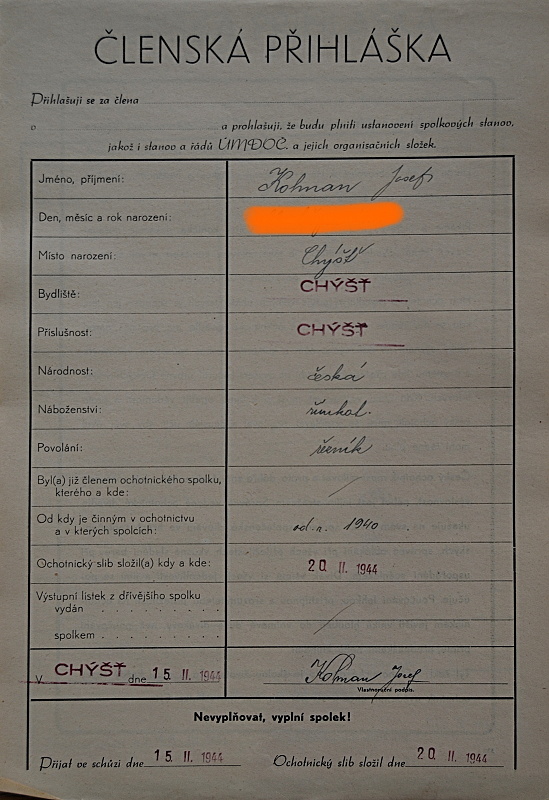 ČLENSKÁ PŘIHLÁŠKA
Přihlašuji se za člena
o a prohlašuji, že budu plniti ustanovení spolkových stanov,
jakož i stanov a řádů ÚMDOČ. a jejich organisačních složek.
Jméno, příjmení: Kohman Josef
Den, měsíc a rok narození:
Místo narození: Chýšť
Bydliště: CHÝŠŤ
Příslušnost: CHÝŠŤ
Národnost: česká
Náboženství: římkat.
Povolání: řezník
Byl(a) již členem ochotnického spolku,
kterého a kde: /
Od kdy je činným v ochotnictvu
a v kterých spolcích: od r. 1940
Ochotnický slib složil(a) kdy a kde: 20 II. 1944
Výstupní lístek z dřívějšího spolku
vydán . . . . . . . . . .
spolkem . . . . . . . . /
V CHÝŠŤ dne 15 II. 1944 Kohman Josef
Vlastnoruční podpis.
Nevyplňovat, vyplní spolek!
Přijat ve schůzi dne 15 II. 1944 Ochotnický slib složil dne 20 II. 1944